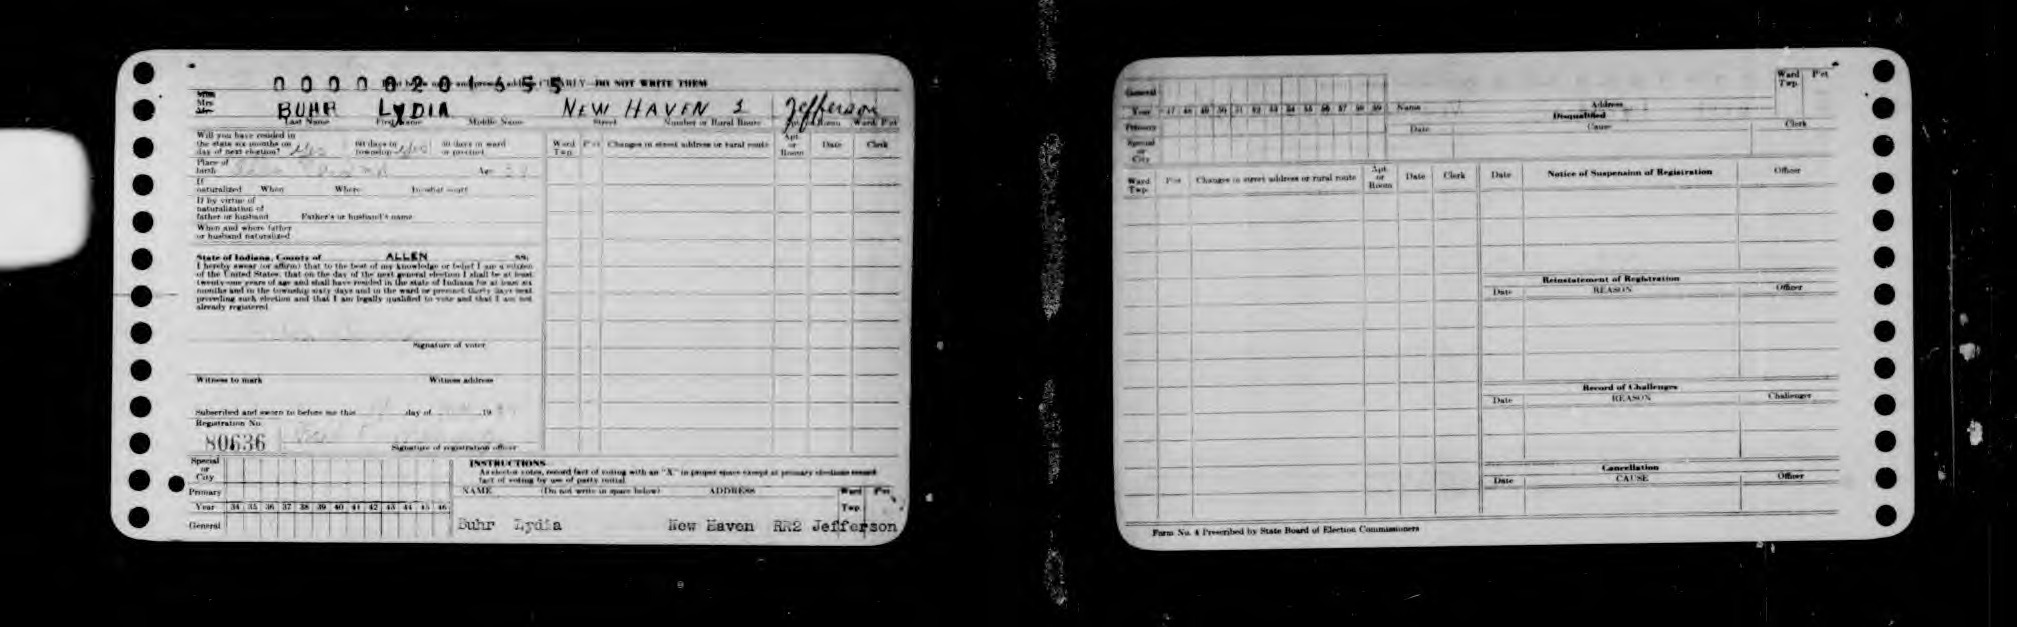 00000201655
CLEARLY—DO NOT WRITE THEM
Miss
Mrs
Mr
BUHR LYDIA NEW HAVEN Jefferson
Last Name First Name Middle Name Street Number or Rural Route Apt. or Room Ward Pct
Will you have resided in
the state six months on 60 days in 30 days in ward
day of next election? yes township yes or precinct
Place of
birth Age
If
naturalized When Where In what court
If by virtue of
naturalization of
father or husband Father's or husband's name
When and where father
or husband naturalized
State of Indiana, County of ALLEN SS:
I hereby swear (or affirm) that to the best of my knowledge or belief I am a citizen
of the United States, that on the day of the next general election I shall be at least
twenty-one years of age and shall have resided in the state of Indiana for at least six
months and in the township sixty days and in the ward or precinct thirty days next
preceding such election and that I am legally qualified to vote and that I am not
already registered.
Signature of voter
Witness to mark Witness address
Subscribed and sworn to before me this day of 19
Registration No.
80636
Signature of registration officer
Ward Twp. Pct Changes in street address or rural route Apt. or Room Date Clerk
Special
or
City
Primary
Year 34 35 36 37 38 39 40 41 42 43 44 45 46
General
INSTRUCTIONS
As elector votes, record fact of voting with an "X" in proper space except at primary elections record
fact of voting by use of party initial
NAME (Do not write in space below) ADDRESS Ward Twp. Pct
Buhr Lydia New Haven RR2 Jefferson
General
Year 47 48 49 50 51 52 53 54 55 56 57 58 59
Primary
Special
or
City
Name Address Ward Twp. Pct
Disqualified
Date Cause Clerk
Ward Twp. Pct Changes in street address or rural route Apt. or Room Date Clerk
Date Notice of Suspension of Registration Officer
Reinstatement of Registration
Date REASON Officer
Record of Challenges
Date REASON Challenger
Cancellation
Date CAUSE Officer
Form No. 4 Prescribed by State Board of Election Commissioners